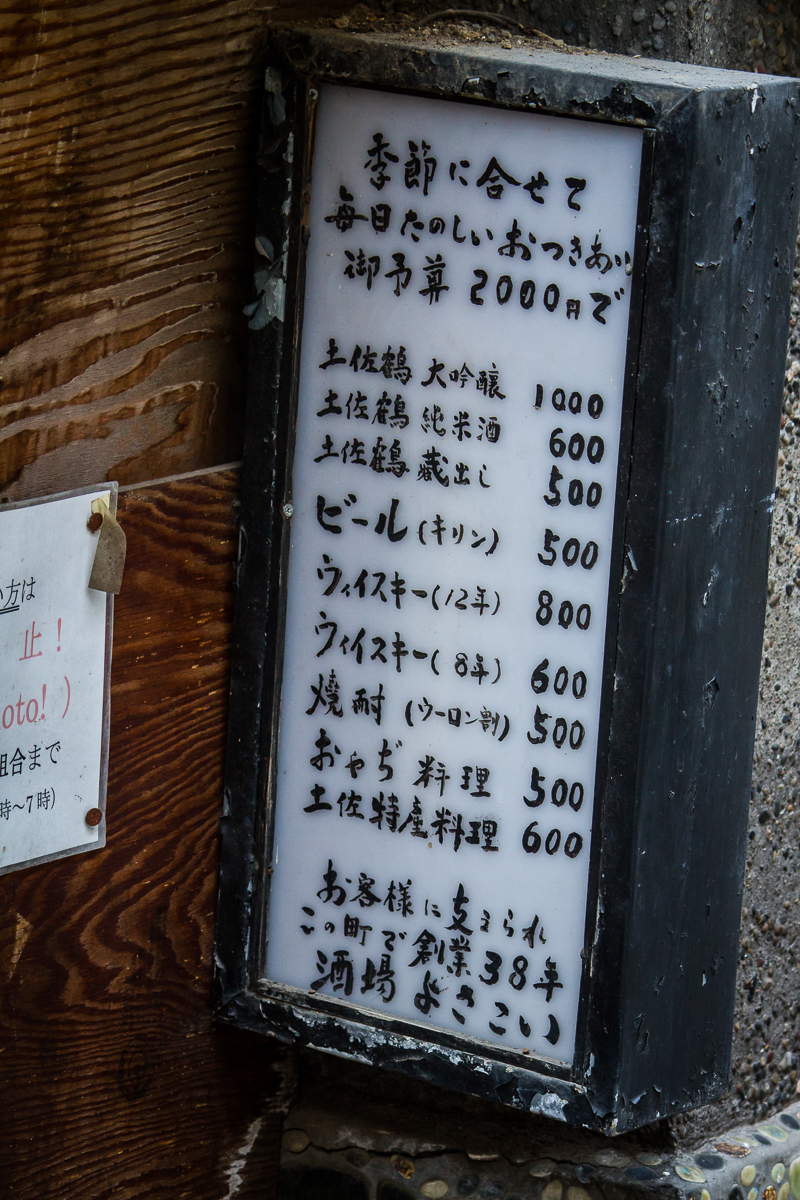 季節に合せて
毎日たのしいおつきあい
御予算2000円で
土佐鶴 大吟醸 1000
土佐鶴 純米酒 600
土佐鶴 蔵出し 500
ビール(キリン) 500
ウィイスキー(12年) 800
ウィイスキー(8年) 600
焼酎(ウーロン割) 500
おやぢ料理 500
土佐特産料理 600
お客様に支えられ
この町で創業38年
酒場 よさこい
い方は
止!
oto!)
組合まで
時～7時)